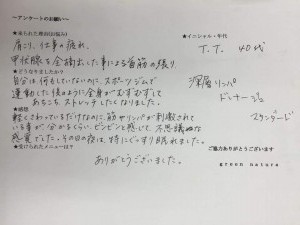 〜アンケートのお願い〜
★来られた理由(お悩み)
肩こり、仕事の疲れ、
甲状腺を全摘出した事による首筋の張り
★どうなりましたか？
自分は、何もしていないのに、スポーツジムで
運動した後のように全身がむずむずして
あちこちストレッチしたくなりました。
★感想
軽くさわっているだけなのに、筋やリンパが刺激されて
いる事が分かるくらい、ビンビンと感じて、不思議な
感覚でした。その日の夜は、特にぐっすり眠れました。
★受けられたメニューは？
ありがとうございました。
★イニシャル・年代
T.T. 40代
深層リンパ
ドレナージュ
スタンダード
ご協力ありがとうございます
green nature